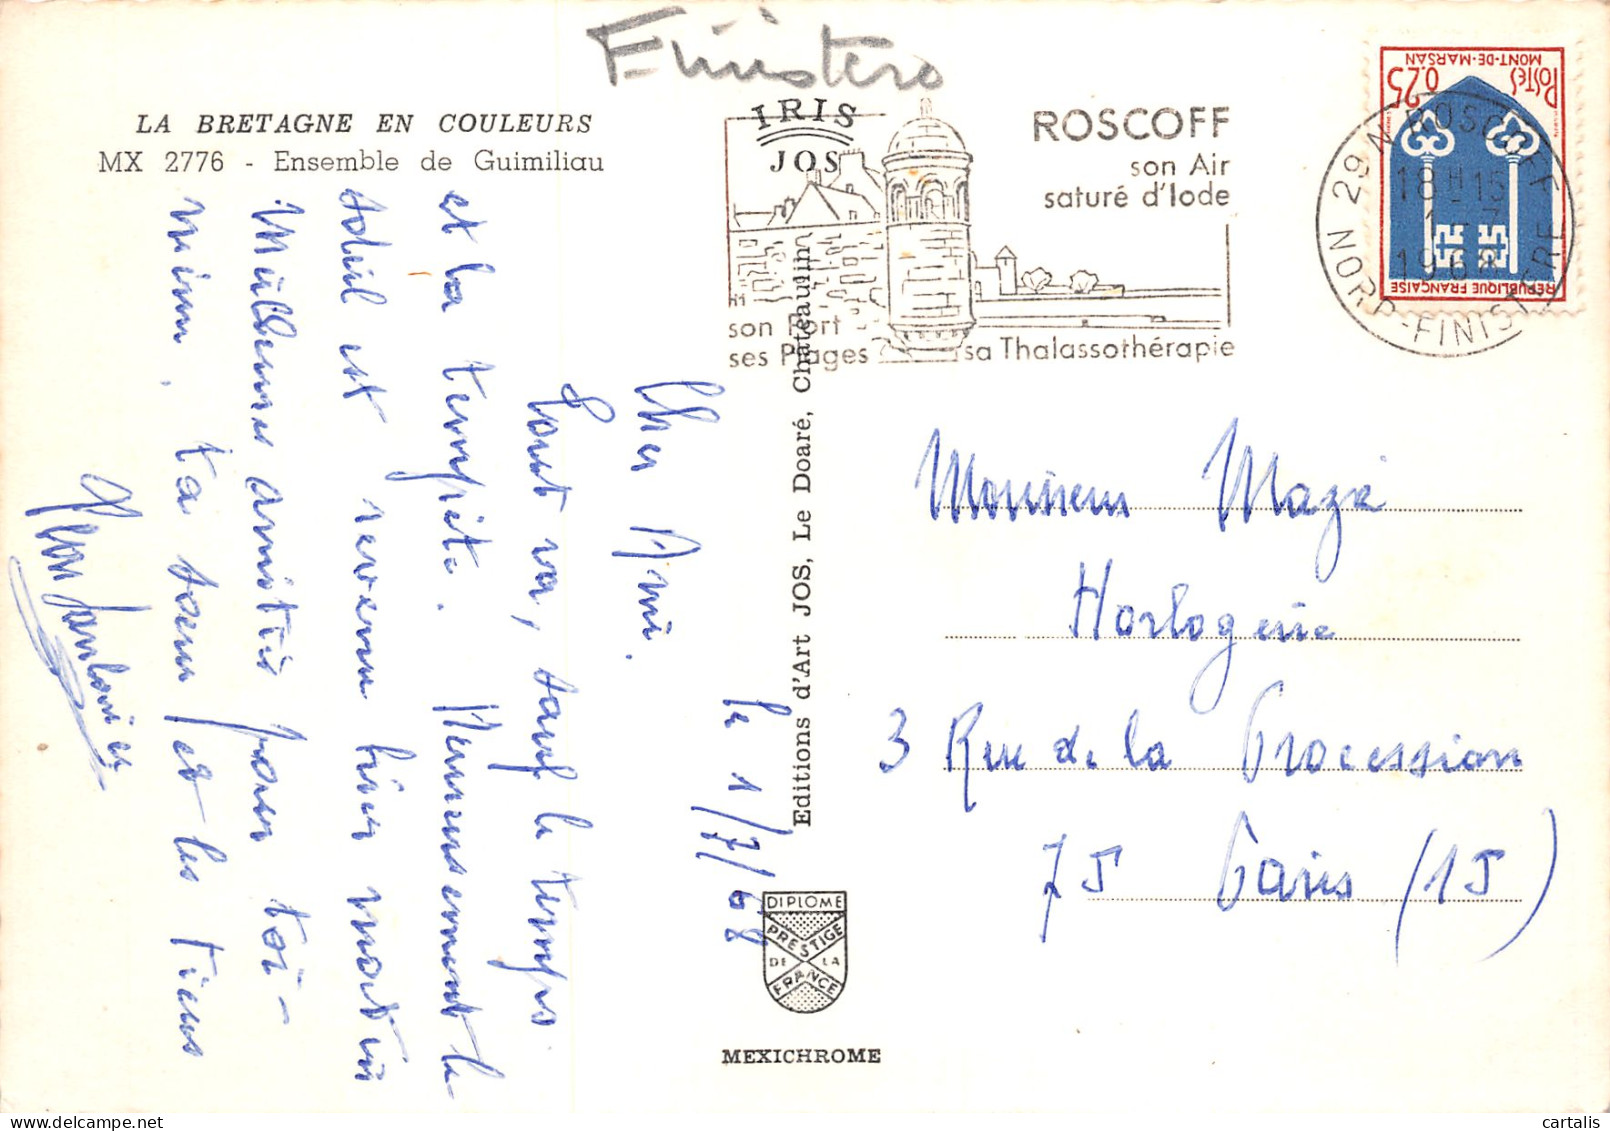 Finistère
LA BRETAGNE EN COULEURS
MX 2776 - Ensemble de Guimiliau
IRIS
JOS
ROSCOFF
son Air
saturé d'Iode
son Port
ses Plages
sa Thalassothérapie
POSTES
0.25
MONT-DE-MARSAN
REPUBLIQUE FRANÇAISE
29 N ROSCOFF
18H15
1-7
1968
NORD-FINISTERE
le 1/7/68
Cher Ami.
Tout va, sauf le temps
et la tempête. Heureusement le
soleil est revenu hier matin
Meilleures amitiés pour toi-
même, ta soeur et les tiens
Editions d'Art JOS, Le Doaré, Châteaulin
DIPLOME
PRESTIGE
DE LA
FRANCE
MEXICHROME
Monsieur Mazé
Horlogerie
3 Rue de la Procession
75 Paris (15)
cartalis